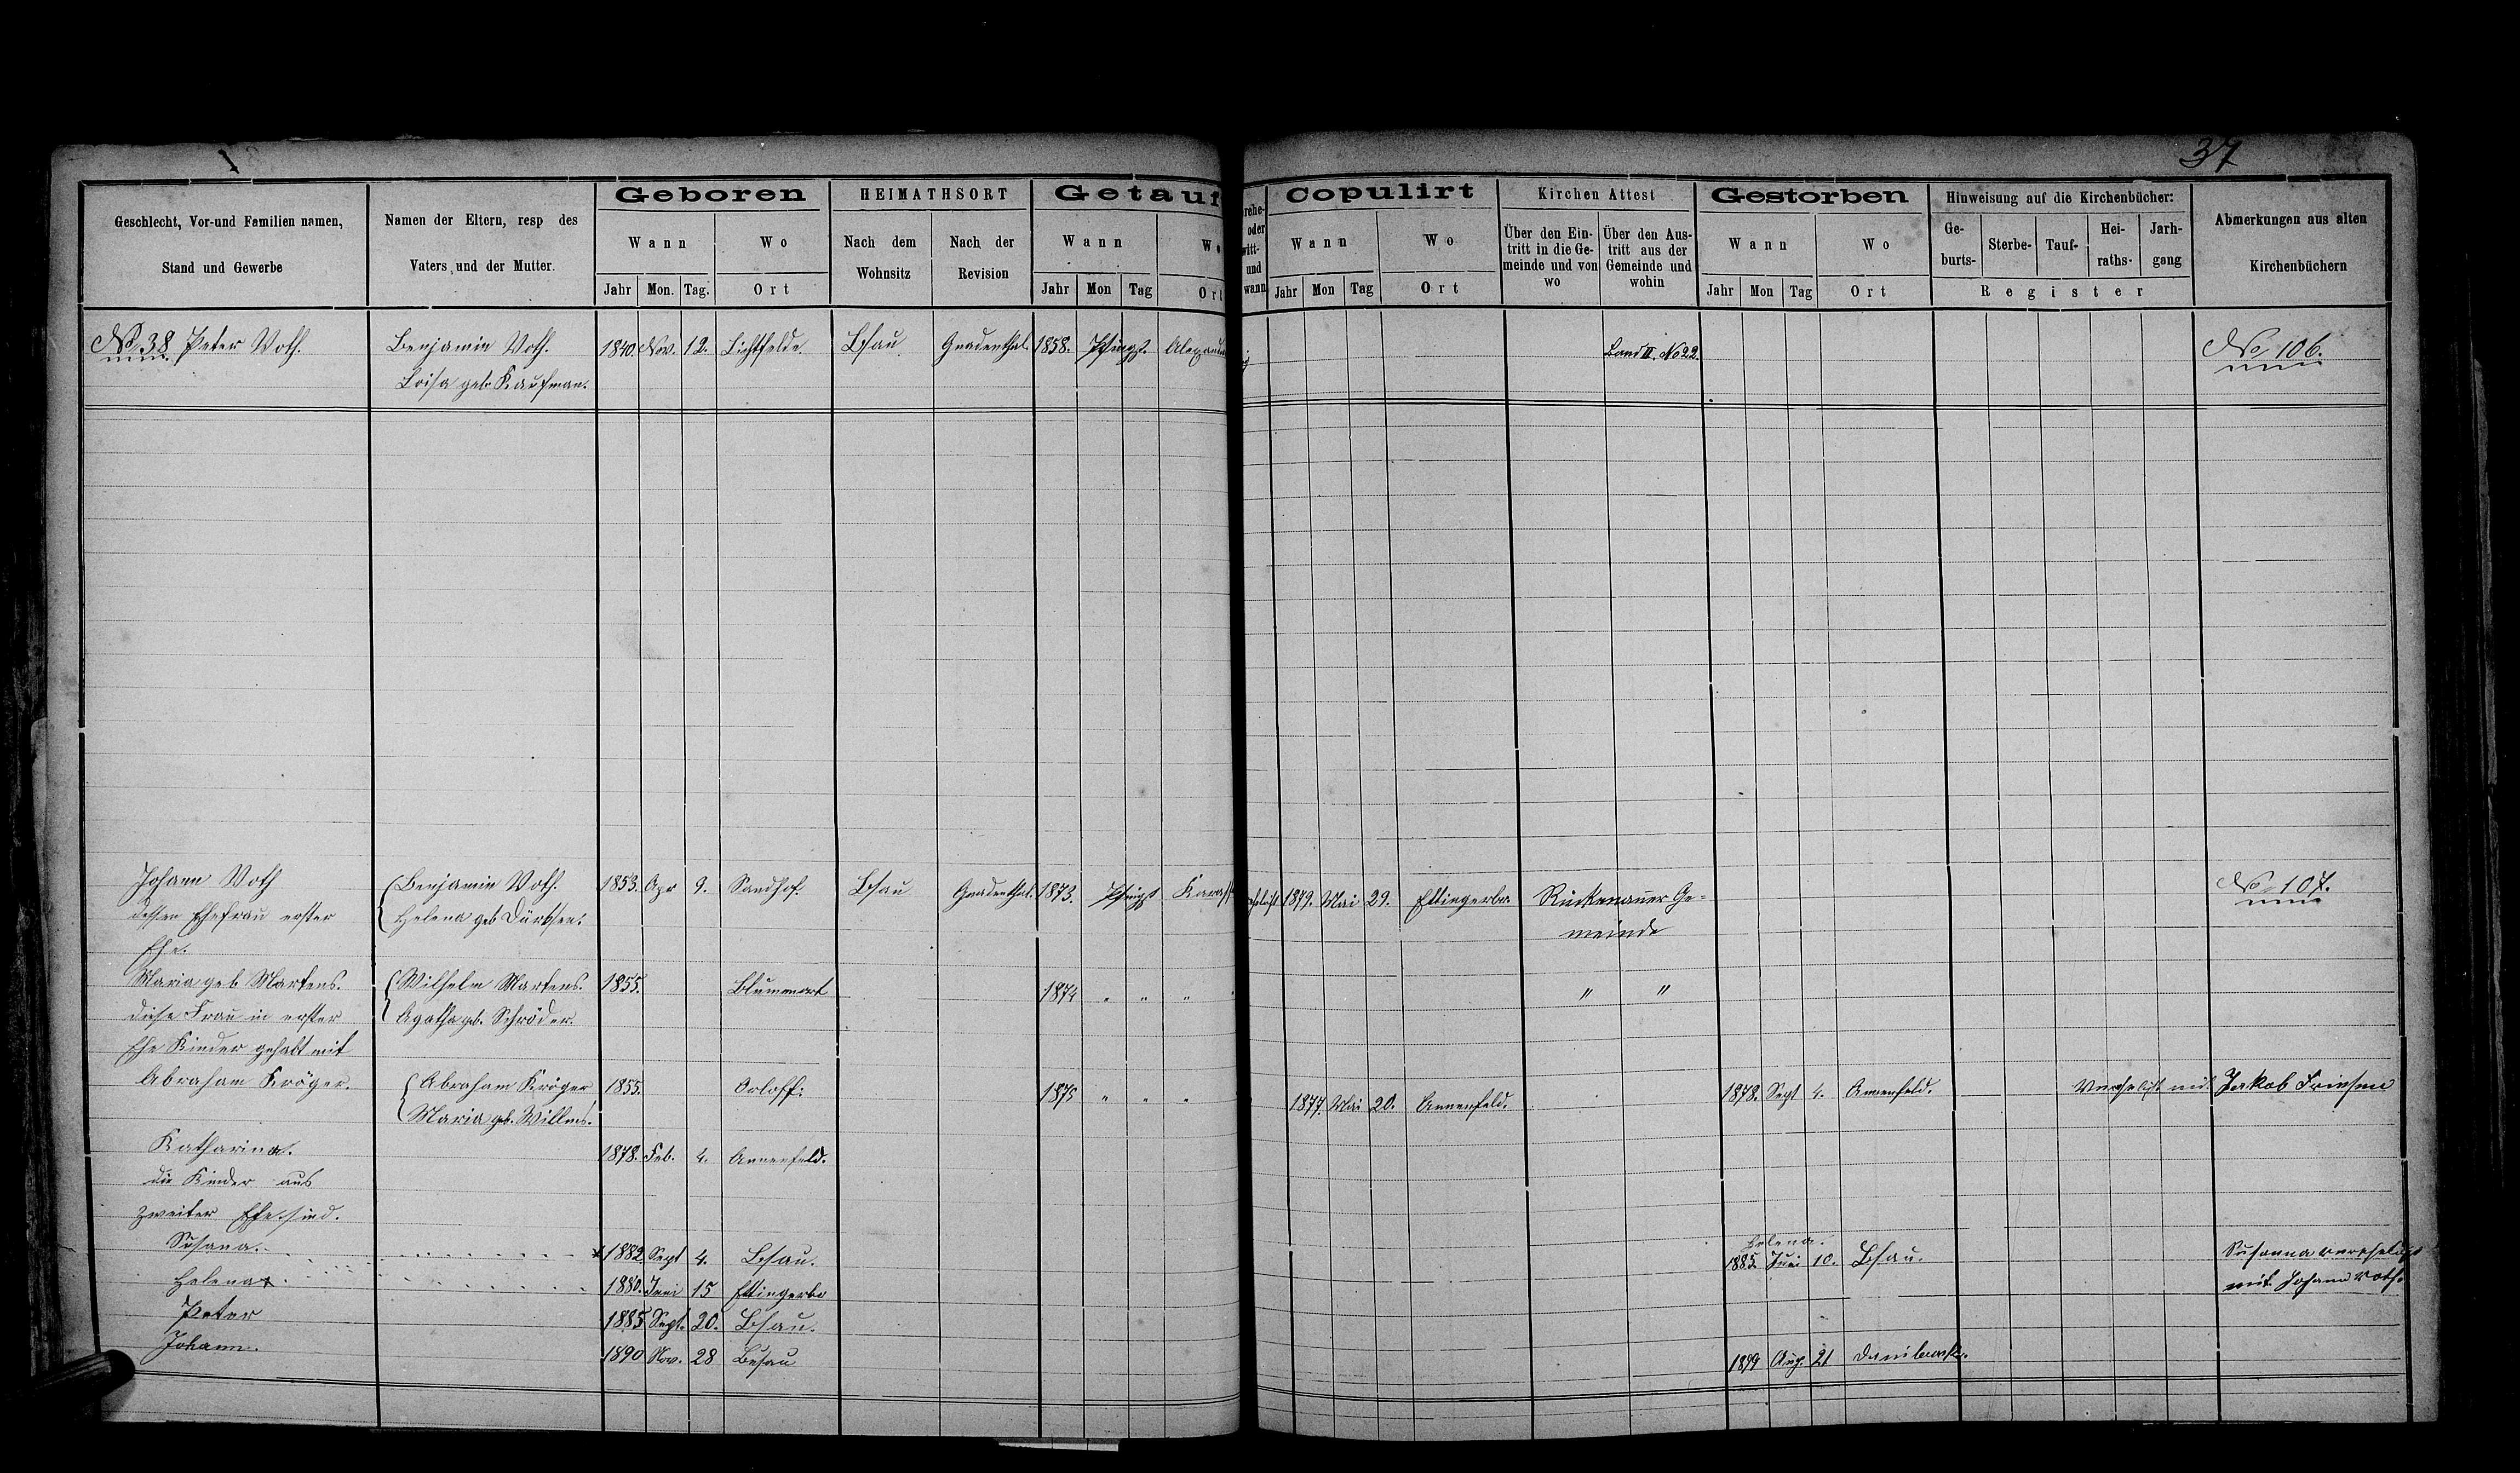 37
Geschlecht, Vor-und Familien namen,
Stand und Gewerbe
Namen der Eltern, resp des
Vaters und der Mutter.
Geboren
Wann
Wo
Jahr Mon. Tag. Ort
HEIMATHSORT
Nach dem
Wohnsitz
Nach der
Revision
Getauf
Wann
Wo
Jahr Mon Tag Ort
rehe-
oder
witt-
und
wann
Copulirt
Wann
Wo
Jahr Mon Tag Ort
Kirchen Attest
Über den Ein-
tritt in die Ge-
meinde und von
wo
Über den Aus-
tritt aus der
Gemeinde und
wohin
Gestorben
Wann
Wo
Jahr Mon Tag Ort
Hinweisung auf die Kirchenbücher:
Ge-
burts-
Sterbe-
Tauf-
Hei-
raths-
Jarh-
gang
Register
Abmerkungen aus alten
Kirchenbüchern
No 38 Peter Voth. Benjamin Voth. 1840. Nov. 12. Lichtfelde. Bsau Gnadenthal. 1858. Pfingst. Band II. No 22. No 106.
Loisa geb Kaufman.
Johann Voth Benjamin Voth. 1853. Apr 9. Sandhof. Bsau Gnadenthal. 1873. Pfingst 1879. Mai 29. Ettingerbr. Rückenauer Ge- No 107.
dessen Ehefrau erster Helena geb Dürksen. meinde
Ehe.
Maria geb Martens. Wilhelm Martens. 1855. Blumenort 1874 " " " " "
diese Frau in erster Agatha geb. Schröder.
Ehe Kinder gehabt mit
Abraham Kröger. Abraham Kröger 1855. Orloff. 1875 " " " 1877. Mai 20. Annenfeld. 1878. Sept 4. Annenfeld. Verehelicht mit Jakob Friesen
Maria geb. Willms.
Katharina. 1878. Feb. 4. Annenfeld.
die Kinder aus
zweiter Ehe sind.
Susana. 1882 Sept 4. Bsau. Helena.
1885. Juni 10. Bsau. Susanna verehelicht
Helena 1880. Juni 15 Ettingerbr mit Johann Voth.
Peter 1885 Sept. 20. Bsau.
Johann. 1890 Nov. 28 Busau 1899 Aug. 21